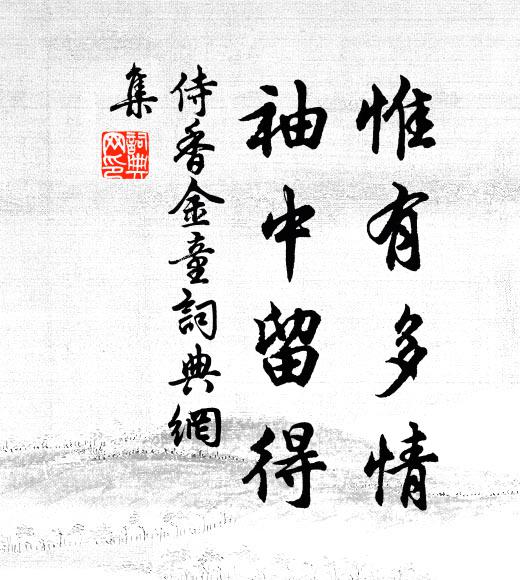 惟有多情
袖中留得
侍香金童詞典網
集
詞典
网印